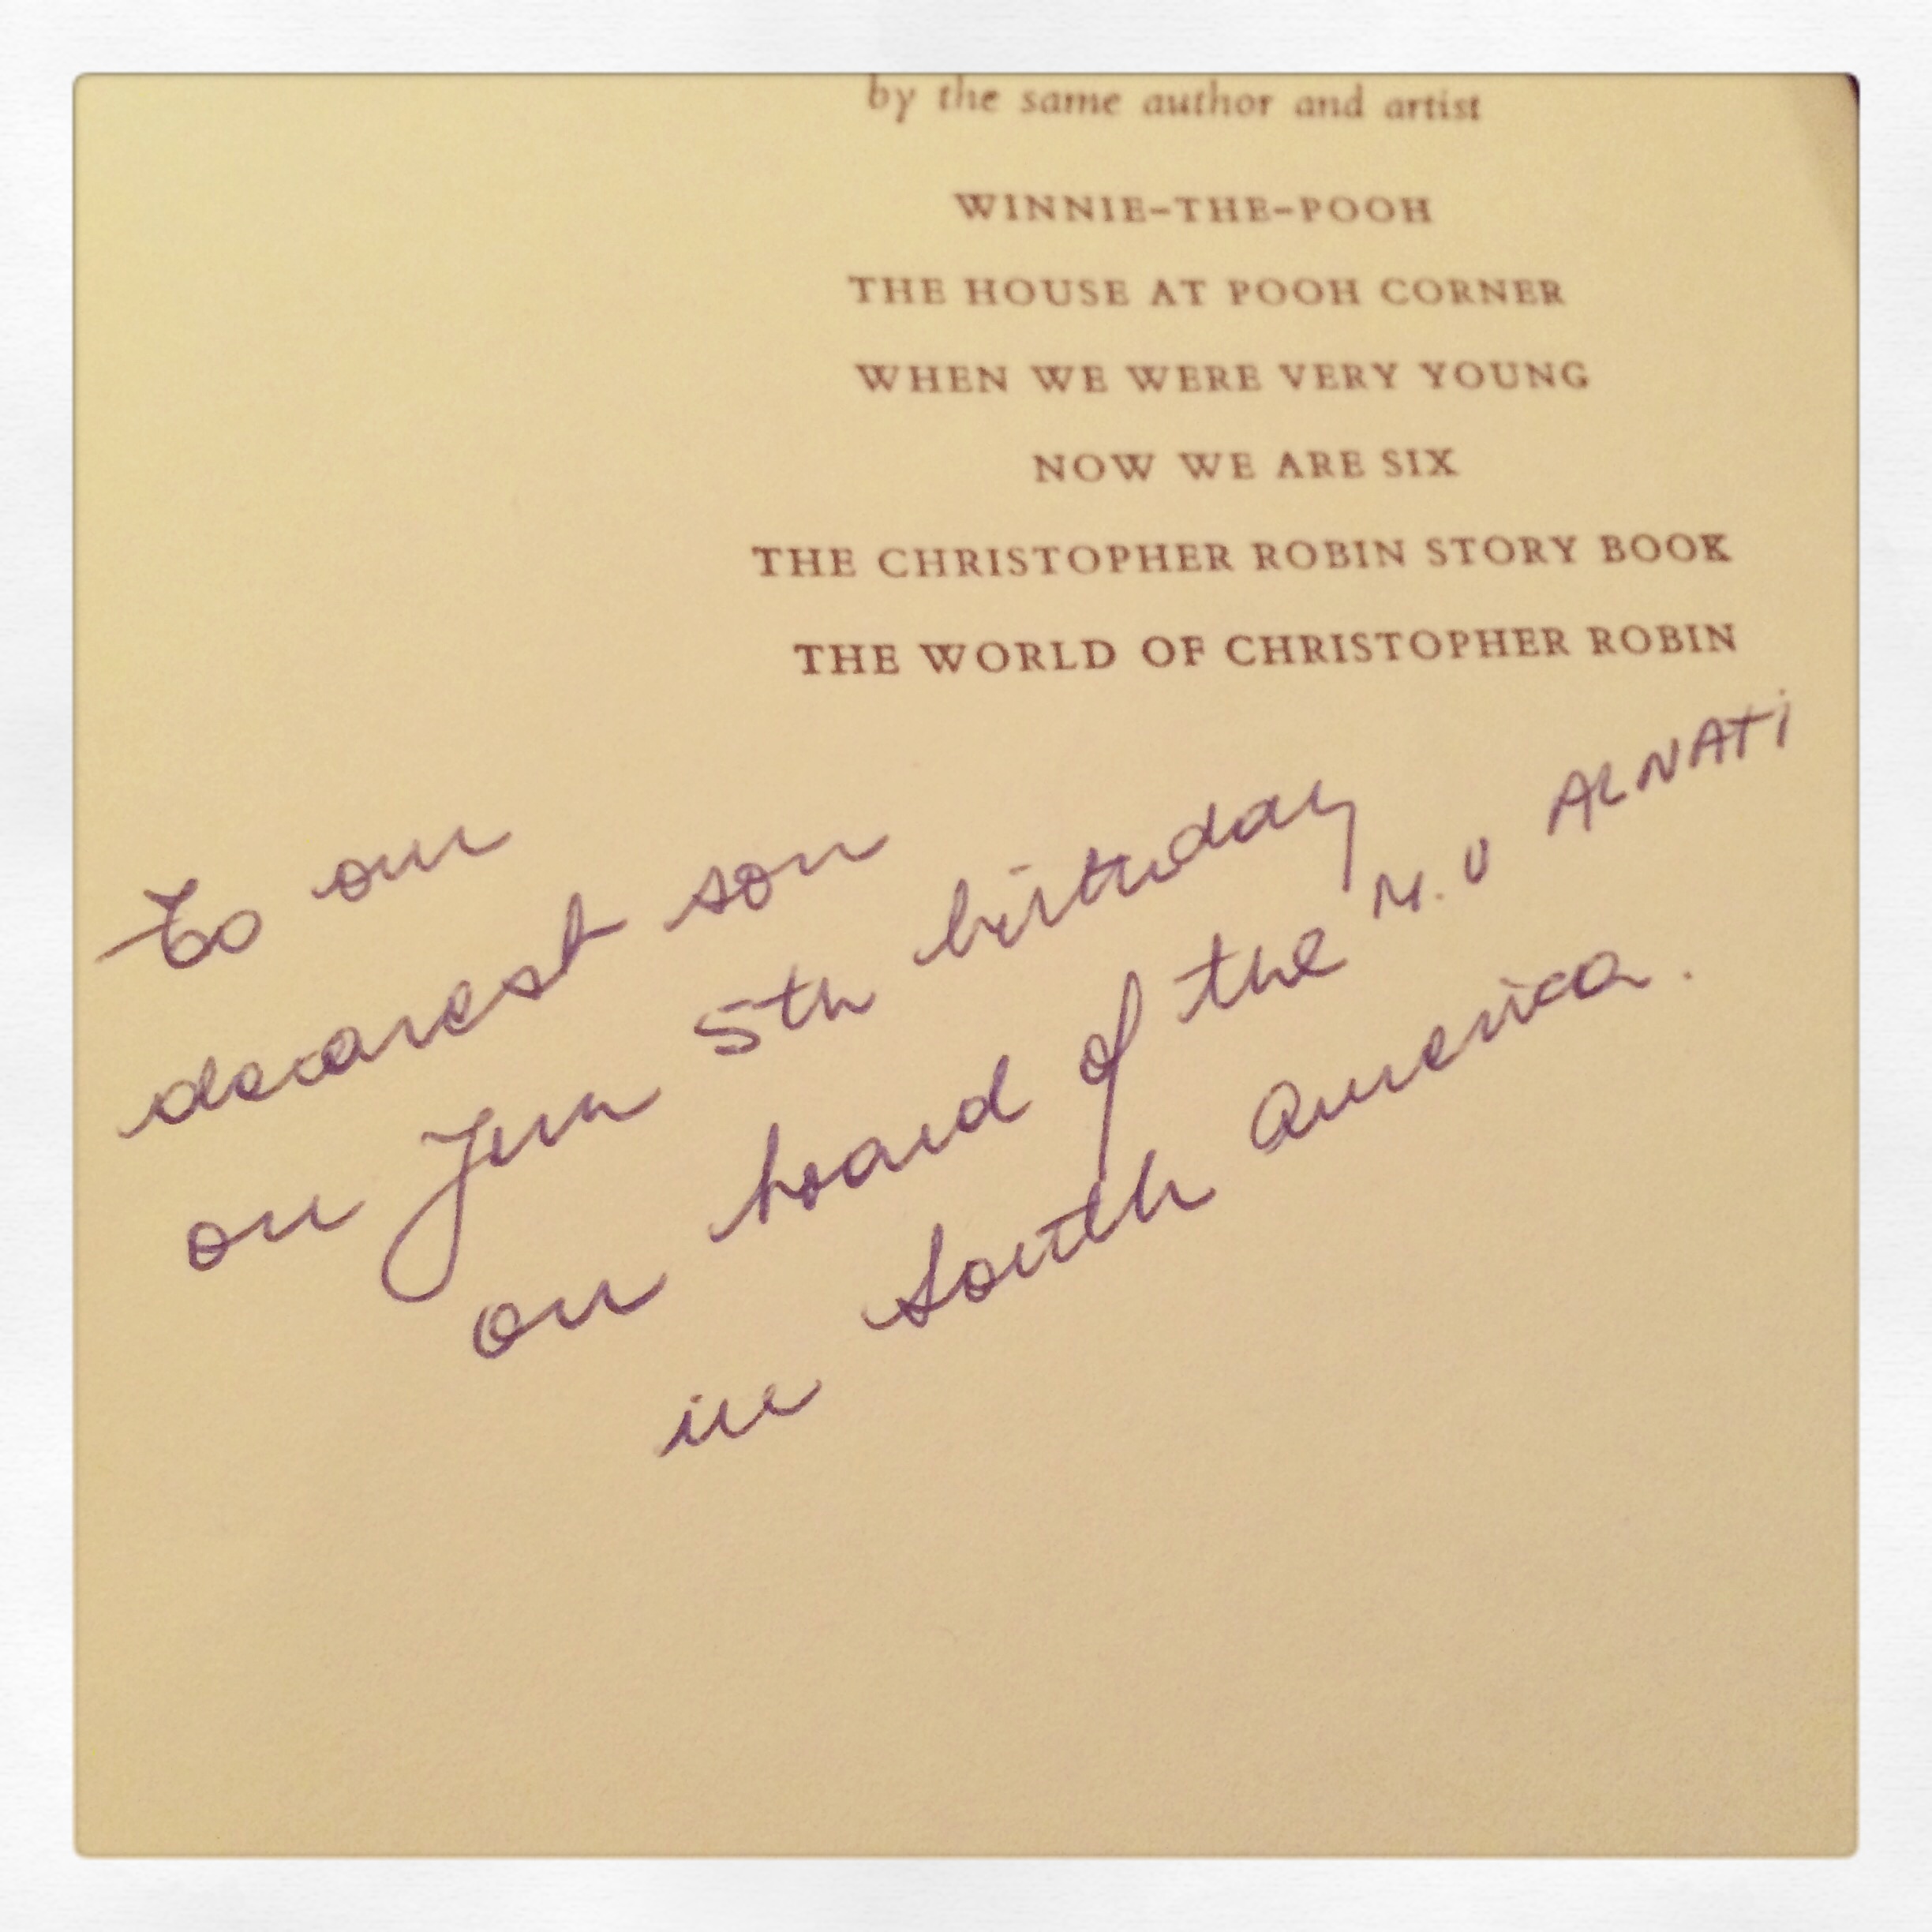 by the same author and artist
WINNIE-THE-POOH
THE HOUSE AT POOH CORNER
WHEN WE WERE VERY YOUNG
NOW WE ARE SIX
THE CHRISTOPHER ROBIN STORY BOOK
THE WORLD OF CHRISTOPHER ROBIN
To our
dearest son
on 5th birthday
on board of the M.V ALNATI
in South America.